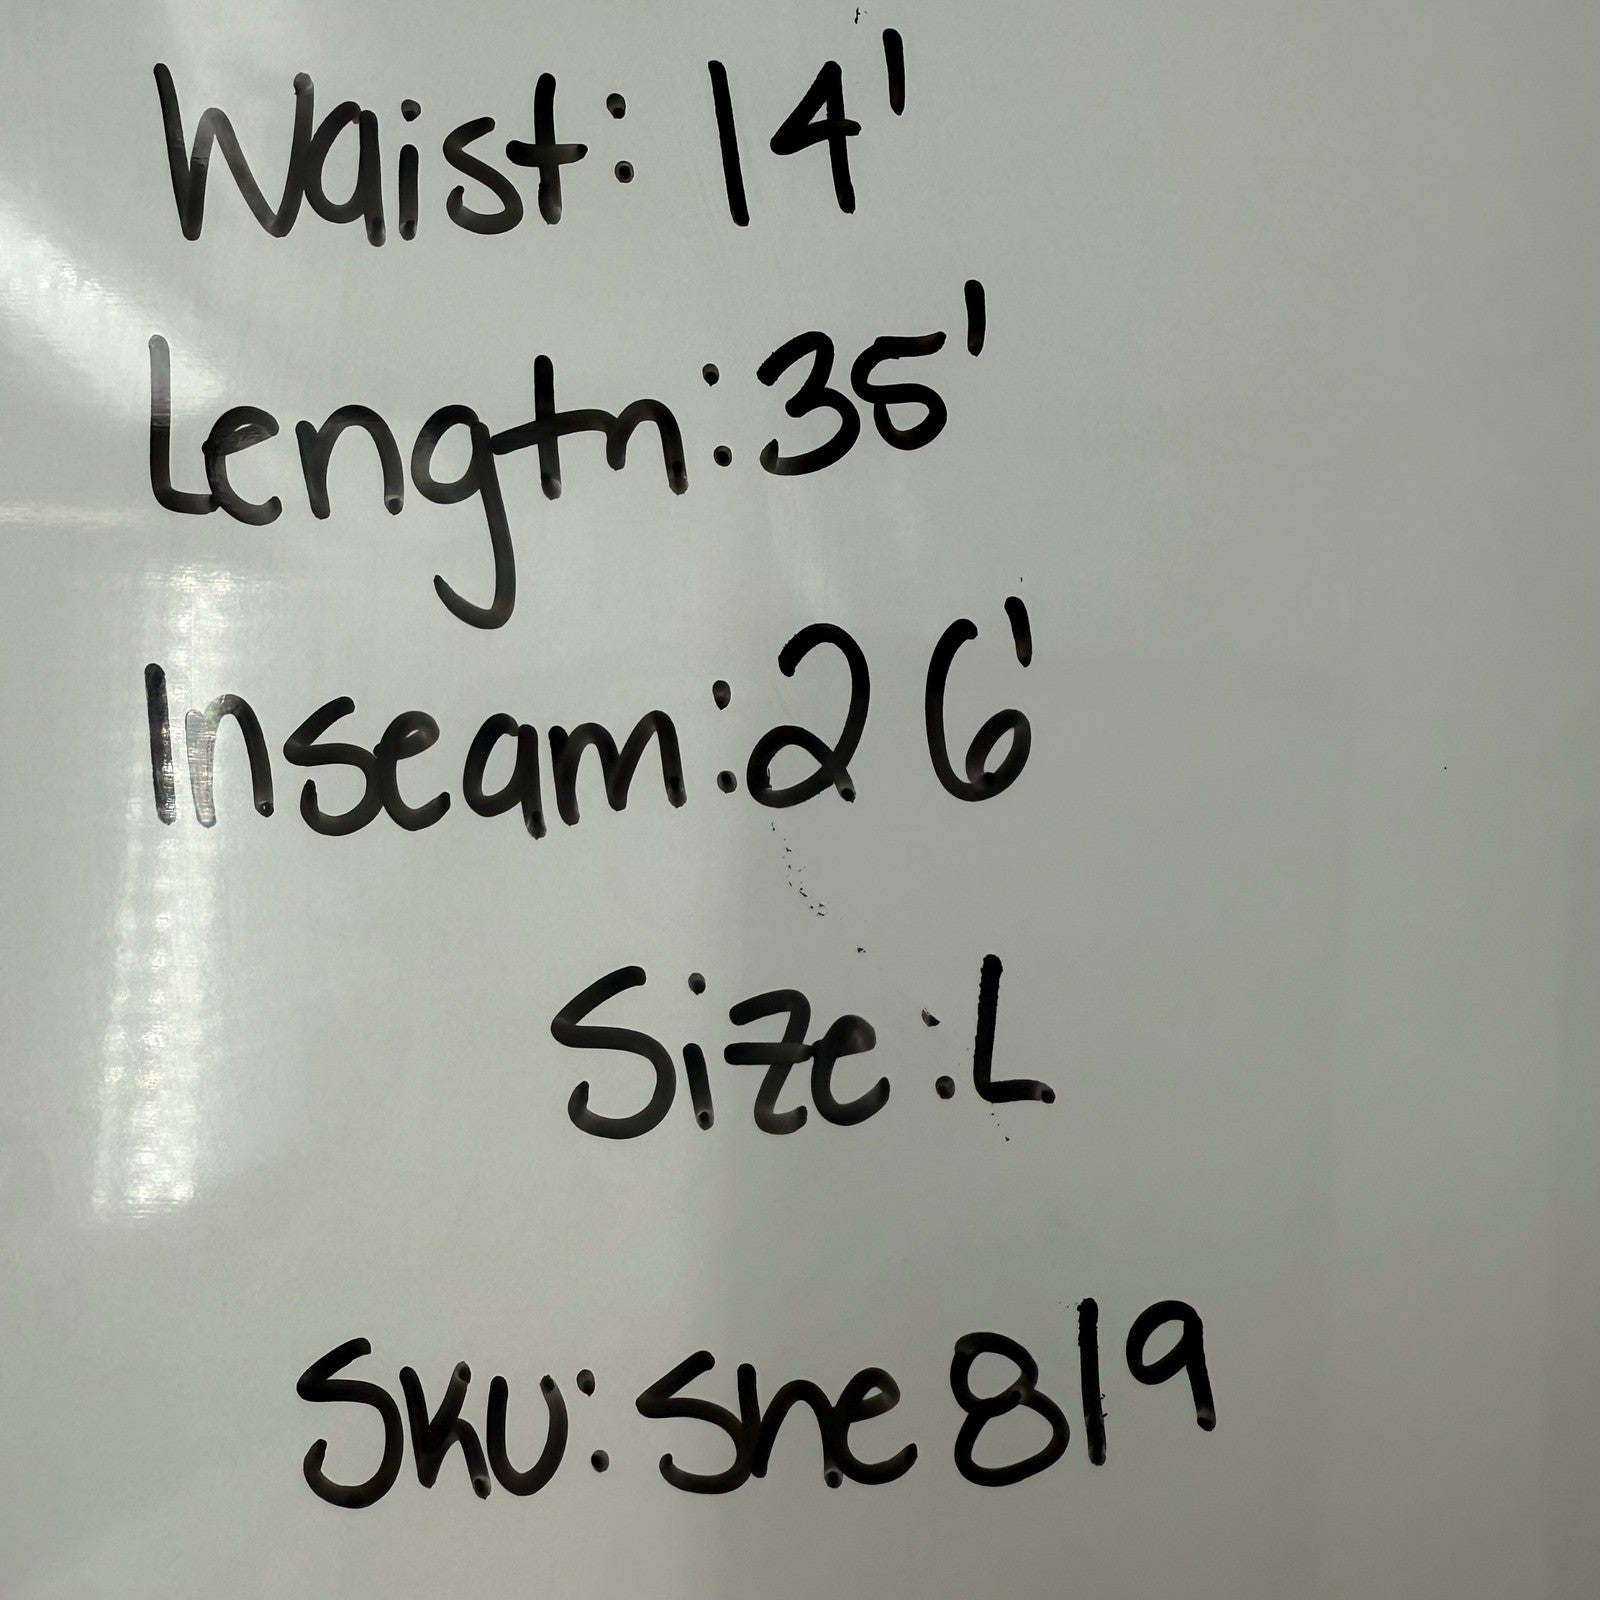 Waist: 14'
Length: 35'
Inseam: 26'
Size: L
Sku: She819